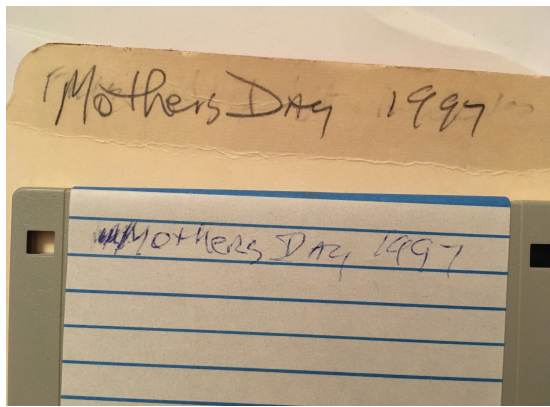 "Mothers Day 1997"
Mothers Day 1997